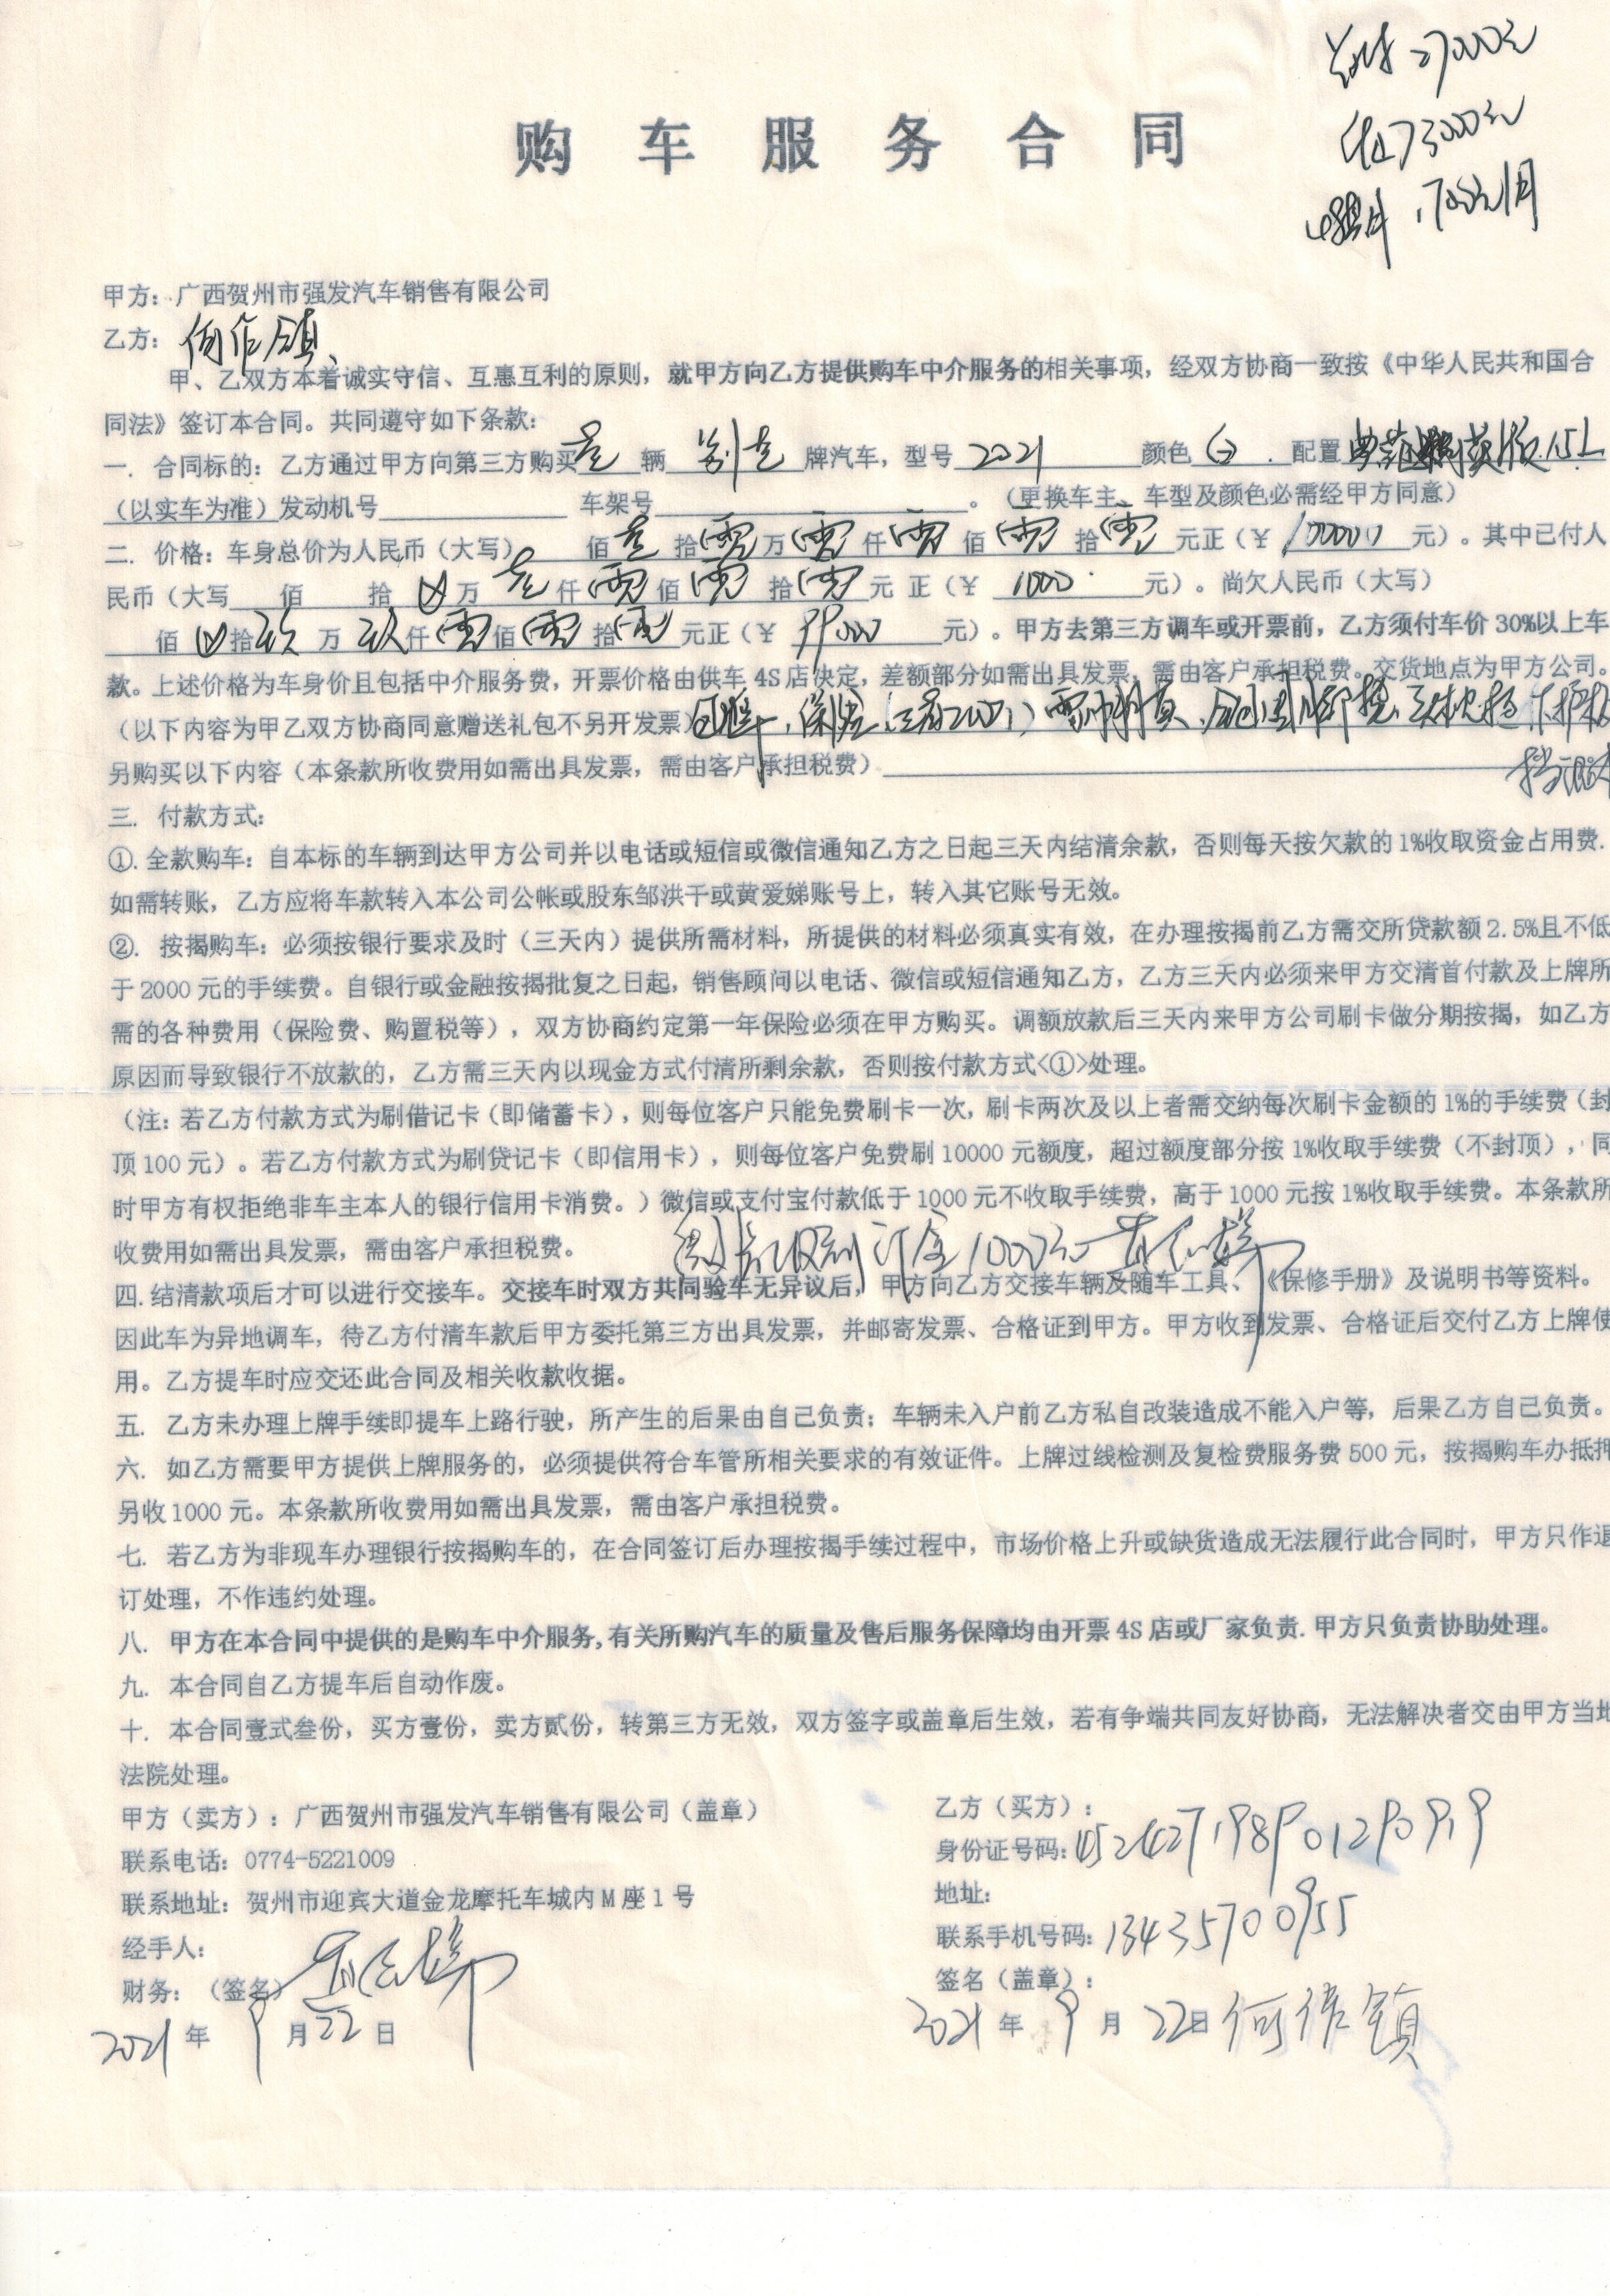 27000元
73000元
购车服务合同
甲方：广西贺州市强发汽车销售有限公司
乙方：何作镇
甲、乙双方本着诚实守信、互惠互利的原则，就甲方向乙方提供购车中介服务的相关事项，经双方协商一致按《中华人民共和国合
同法》签订本合同。共同遵守如下条款：
一. 合同标的：乙方通过甲方向第三方购买 壹 辆 别克 牌汽车，型号 2021 颜色 白 . 配置 1.5L
（以实车为准）发动机号 车架号 。（更换车主、车型及颜色必需经甲方同意）
二. 价格：车身总价为人民币（大写） 佰 壹 拾 零 万 零 仟 零 佰 零 拾 零 元正（￥ 100000 元）。其中已付人
民币（大写 佰 拾 万 壹 仟 零 佰 零 拾 零 元 正（￥ 1000 元）。尚欠人民币（大写）
佰 拾 玖 万 玖 仟 零 佰 零 拾 零 元正（￥ 99000 元）。甲方去第三方调车或开票前，乙方须付车价 30%以上车
款。上述价格为车身价且包括中介服务费，开票价格由供车 4S 店决定，差额部分如需出具发票，需由客户承担税费。交货地点为甲方公司。
（以下内容为甲乙双方协商同意赠送礼包不另开发票）
另购买以下内容（本条款所收费用如需出具发票，需由客户承担税费）
三. 付款方式：
①. 全款购车：自本标的车辆到达甲方公司并以电话或短信或微信通知乙方之日起三天内结清余款，否则每天按欠款的 1%收取资金占用费.
如需转账，乙方应将车款转入本公司公帐或股东邹洪千或黄爱娣账号上，转入其它账号无效。
②. 按揭购车：必须按银行要求及时（三天内）提供所需材料，所提供的材料必须真实有效，在办理按揭前乙方需交所贷款额 2.5%且不低
于 2000 元的手续费。自银行或金融按揭批复之日起，销售顾问以电话、微信或短信通知乙方，乙方三天内必须来甲方交清首付款及上牌所
需的各种费用（保险费、购置税等），双方协商约定第一年保险必须在甲方购买。调额放款后三天内来甲方公司刷卡做分期按揭，如乙方
原因而导致银行不放款的，乙方需三天内以现金方式付清所剩余款，否则按付款方式<①>处理。
（注：若乙方付款方式为刷借记卡（即储蓄卡），则每位客户只能免费刷卡一次，刷卡两次及以上者需交纳每次刷卡金额的 1%的手续费（封
顶 100 元）。若乙方付款方式为刷贷记卡（即信用卡），则每位客户免费刷 10000 元额度，超过额度部分按 1%收取手续费（不封顶），同
时甲方有权拒绝非车主本人的银行信用卡消费。）微信或支付宝付款低于 1000 元不收取手续费，高于 1000 元按 1%收取手续费。本条款所
收费用如需出具发票，需由客户承担税费。
收到订金1000元 黄爱娣
四. 结清款项后才可以进行交接车。交接车时双方共同验车无异议后，甲方向乙方交接车辆及随车工具、《保修手册》及说明书等资料。
因此车为异地调车，待乙方付清车款后甲方委托第三方出具发票，并邮寄发票、合格证到甲方。甲方收到发票、合格证后交付乙方上牌使
用。乙方提车时应交还此合同及相关收款收据。
五. 乙方未办理上牌手续即提车上路行驶，所产生的后果由自己负责；车辆未入户前乙方私自改装造成不能入户等，后果乙方自己负责。
六. 如乙方需要甲方提供上牌服务的，必须提供符合车管所相关要求的有效证件。上牌过线检测及复检费服务费 500 元，按揭购车办抵押
另收 1000 元。本条款所收费用如需出具发票，需由客户承担税费。
七. 若乙方为非现车办理银行按揭购车的，在合同签订后办理按揭手续过程中，市场价格上升或缺货造成无法履行此合同时，甲方只作退
订处理，不作违约处理。
八. 甲方在本合同中提供的是购车中介服务,有关所购汽车的质量及售后服务保障均由开票 4S 店或厂家负责. 甲方只负责协助处理。
九. 本合同自乙方提车后自动作废。
十. 本合同壹式叁份，买方壹份，卖方贰份，转第三方无效，双方签字或盖章后生效，若有争端共同友好协商，无法解决者交由甲方当地
法院处理。
甲方（卖方）：广西贺州市强发汽车销售有限公司（盖章）
联系电话：0774-5221009
联系地址：贺州市迎宾大道金龙摩托车城内 M 座 1 号
经手人：
财务：（签名） 黄爱娣
2021 年 9 月 22 日
乙方（买方）：
身份证号码：452427198901290919
地址：
联系手机号码：13435700955
签名（盖章）：
2021 年 9 月 22 日 何作镇